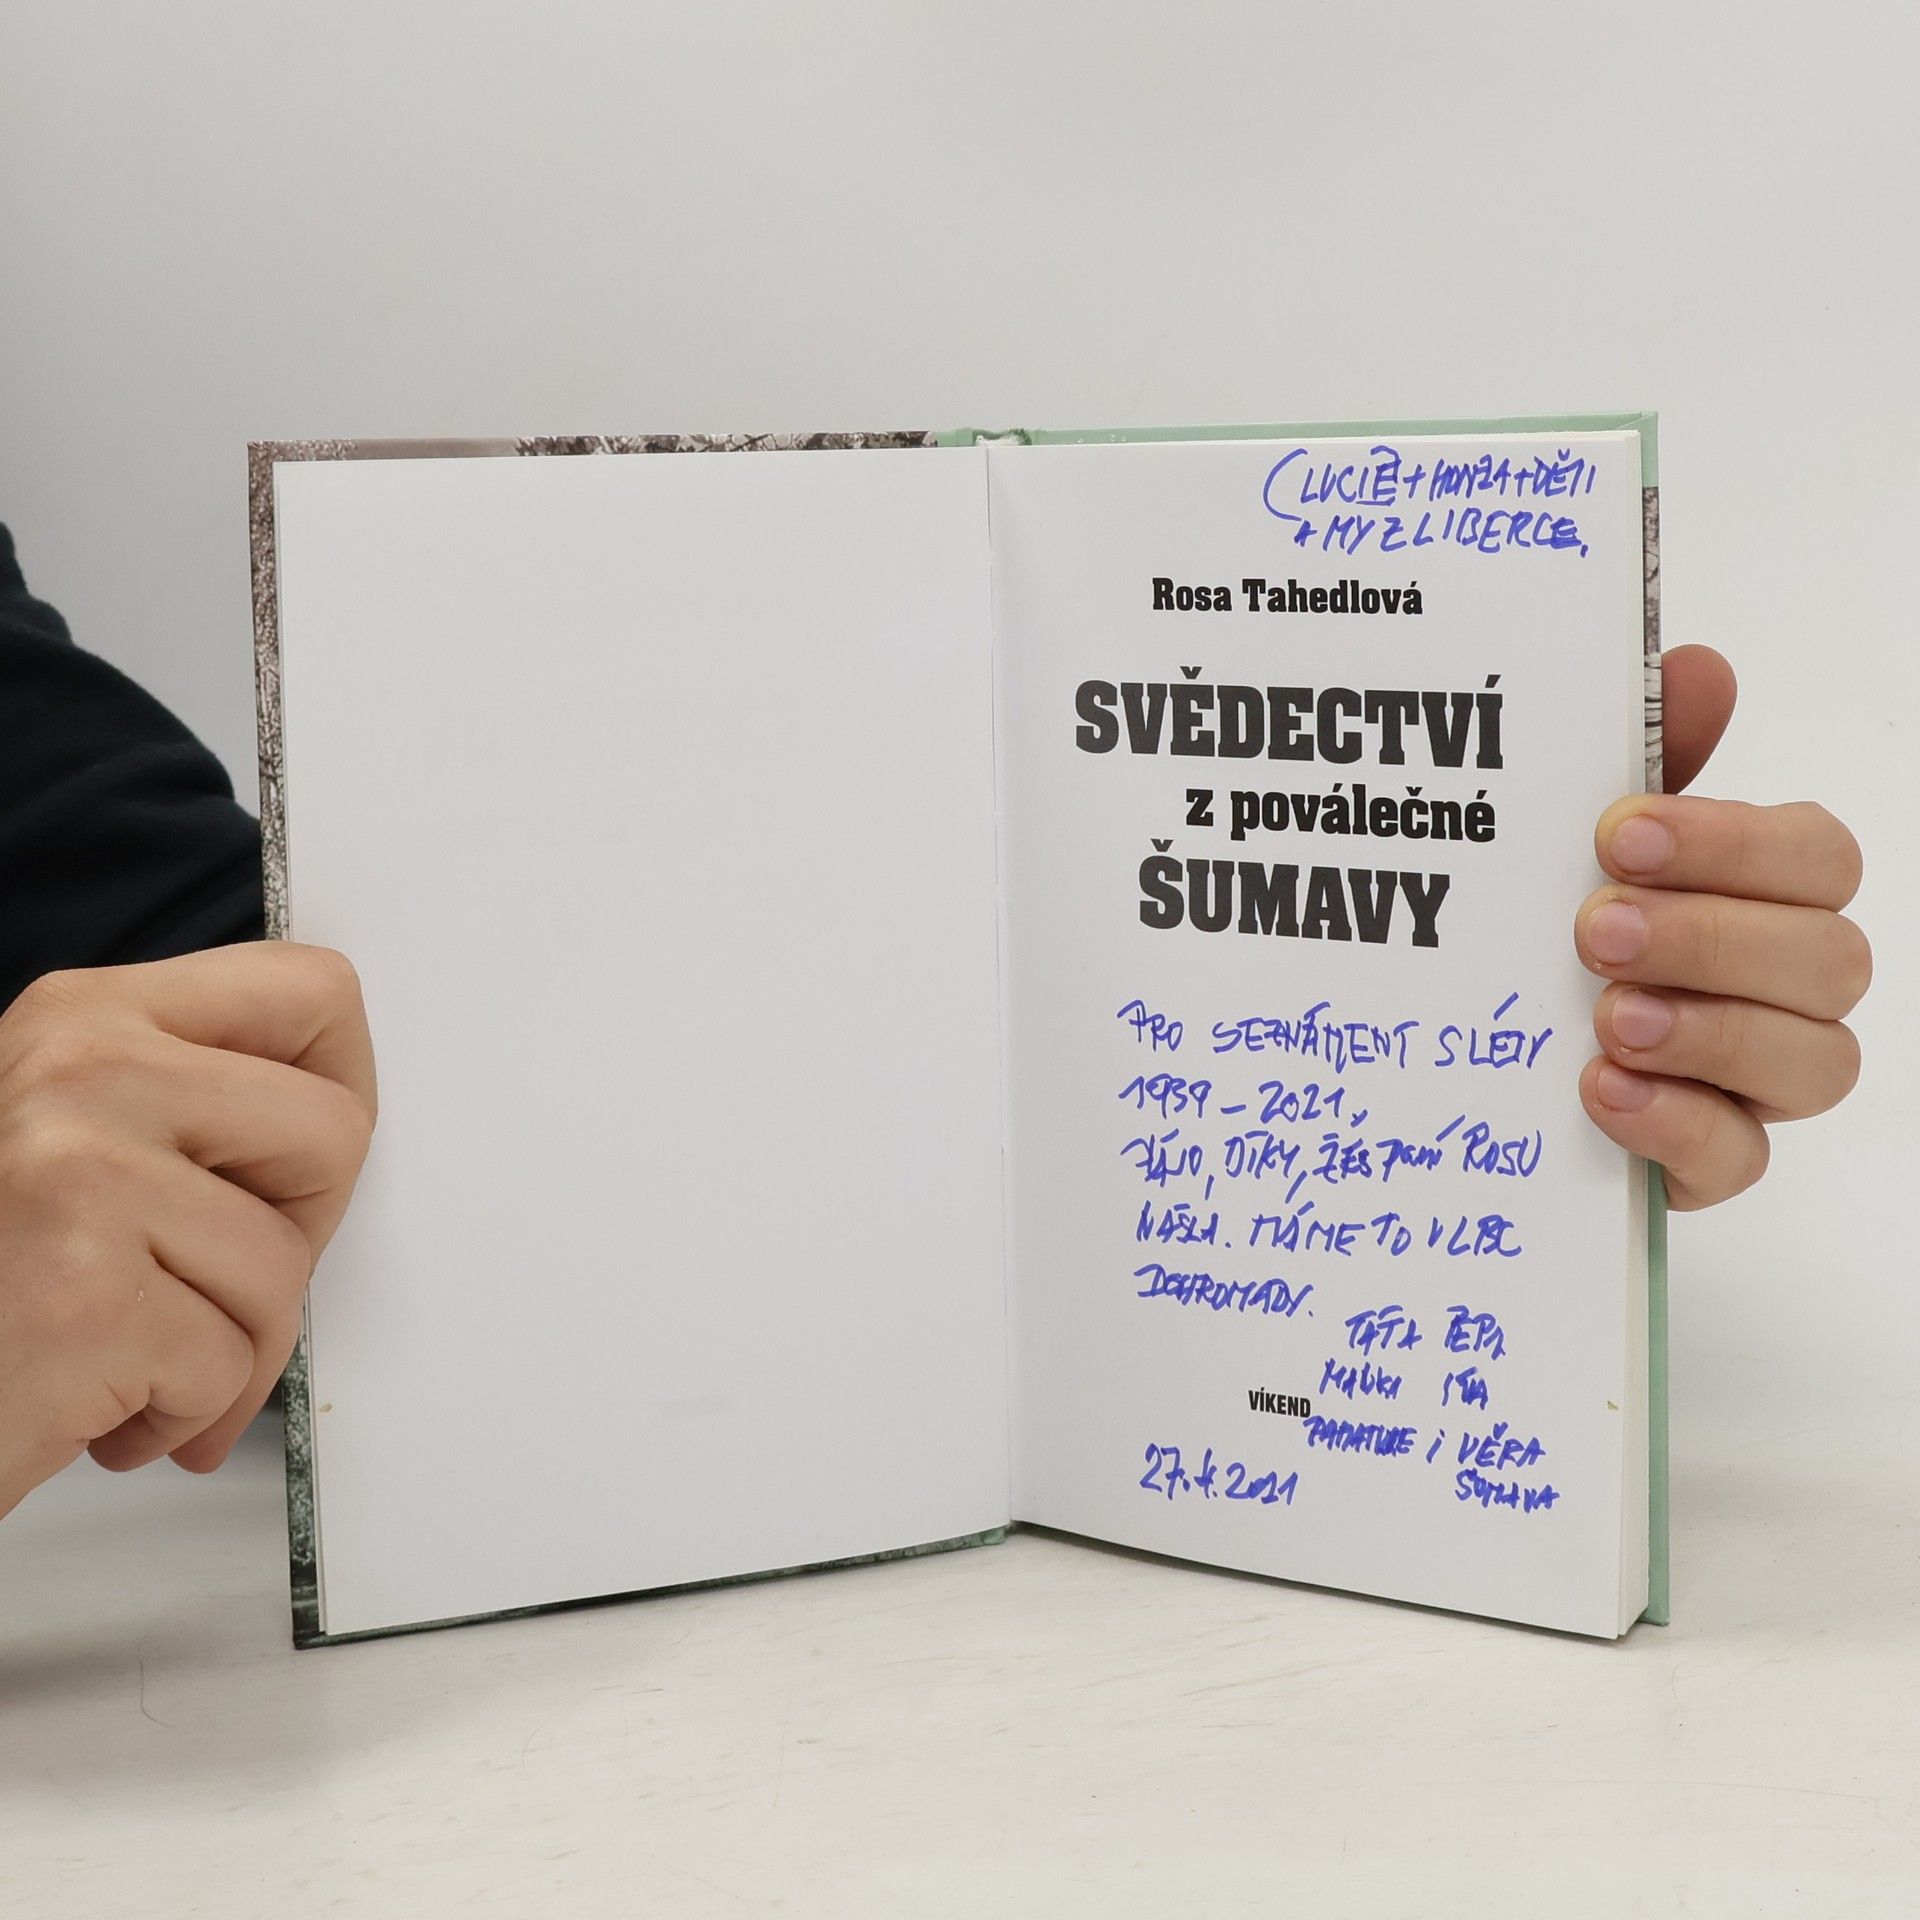 (LUCIE + HONZA + DĚTI
+ MY Z LIBERCE,
Rosa Tahedlová
SVĚDECTVÍ
z poválečné
ŠUMAVY
PRO SEZNÁMENÍ S LÉTY
1939 – 2021,
DÍKY, ŽES PANÍ ROSU
NAŠLA. MÁME TO V LBC
DOHROMADY.
TÁTA PEPA
MAMKA IVA
VÍKEND
i VĚRA
ŠUMAVA
27.4.2021